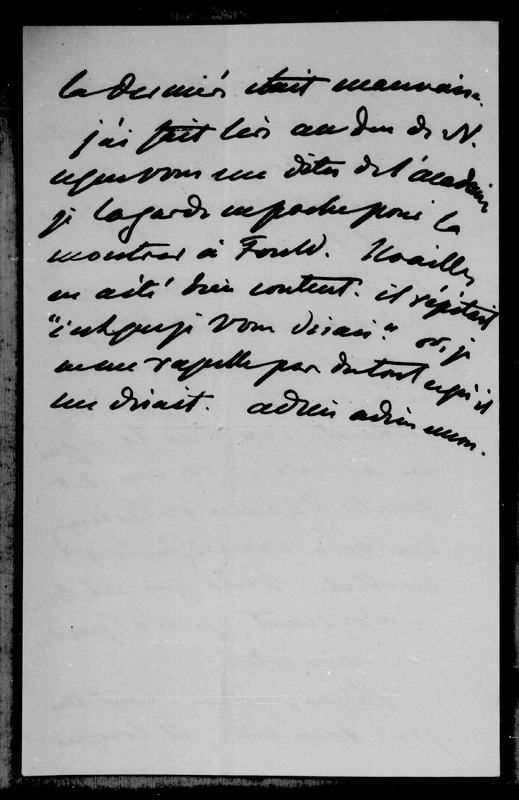 la dernière était mauvaise.
j'ai fait lire au duc de N.
ce que vous me dites de l'académie
je la garde en poche pour la
montrer à Fould. Noailles
en a été bien content. il répétait
"c'est ce que je vous disais." or, je
ne me rapelle pas du tout ce qu'il
me disait. adieu adieu mon.